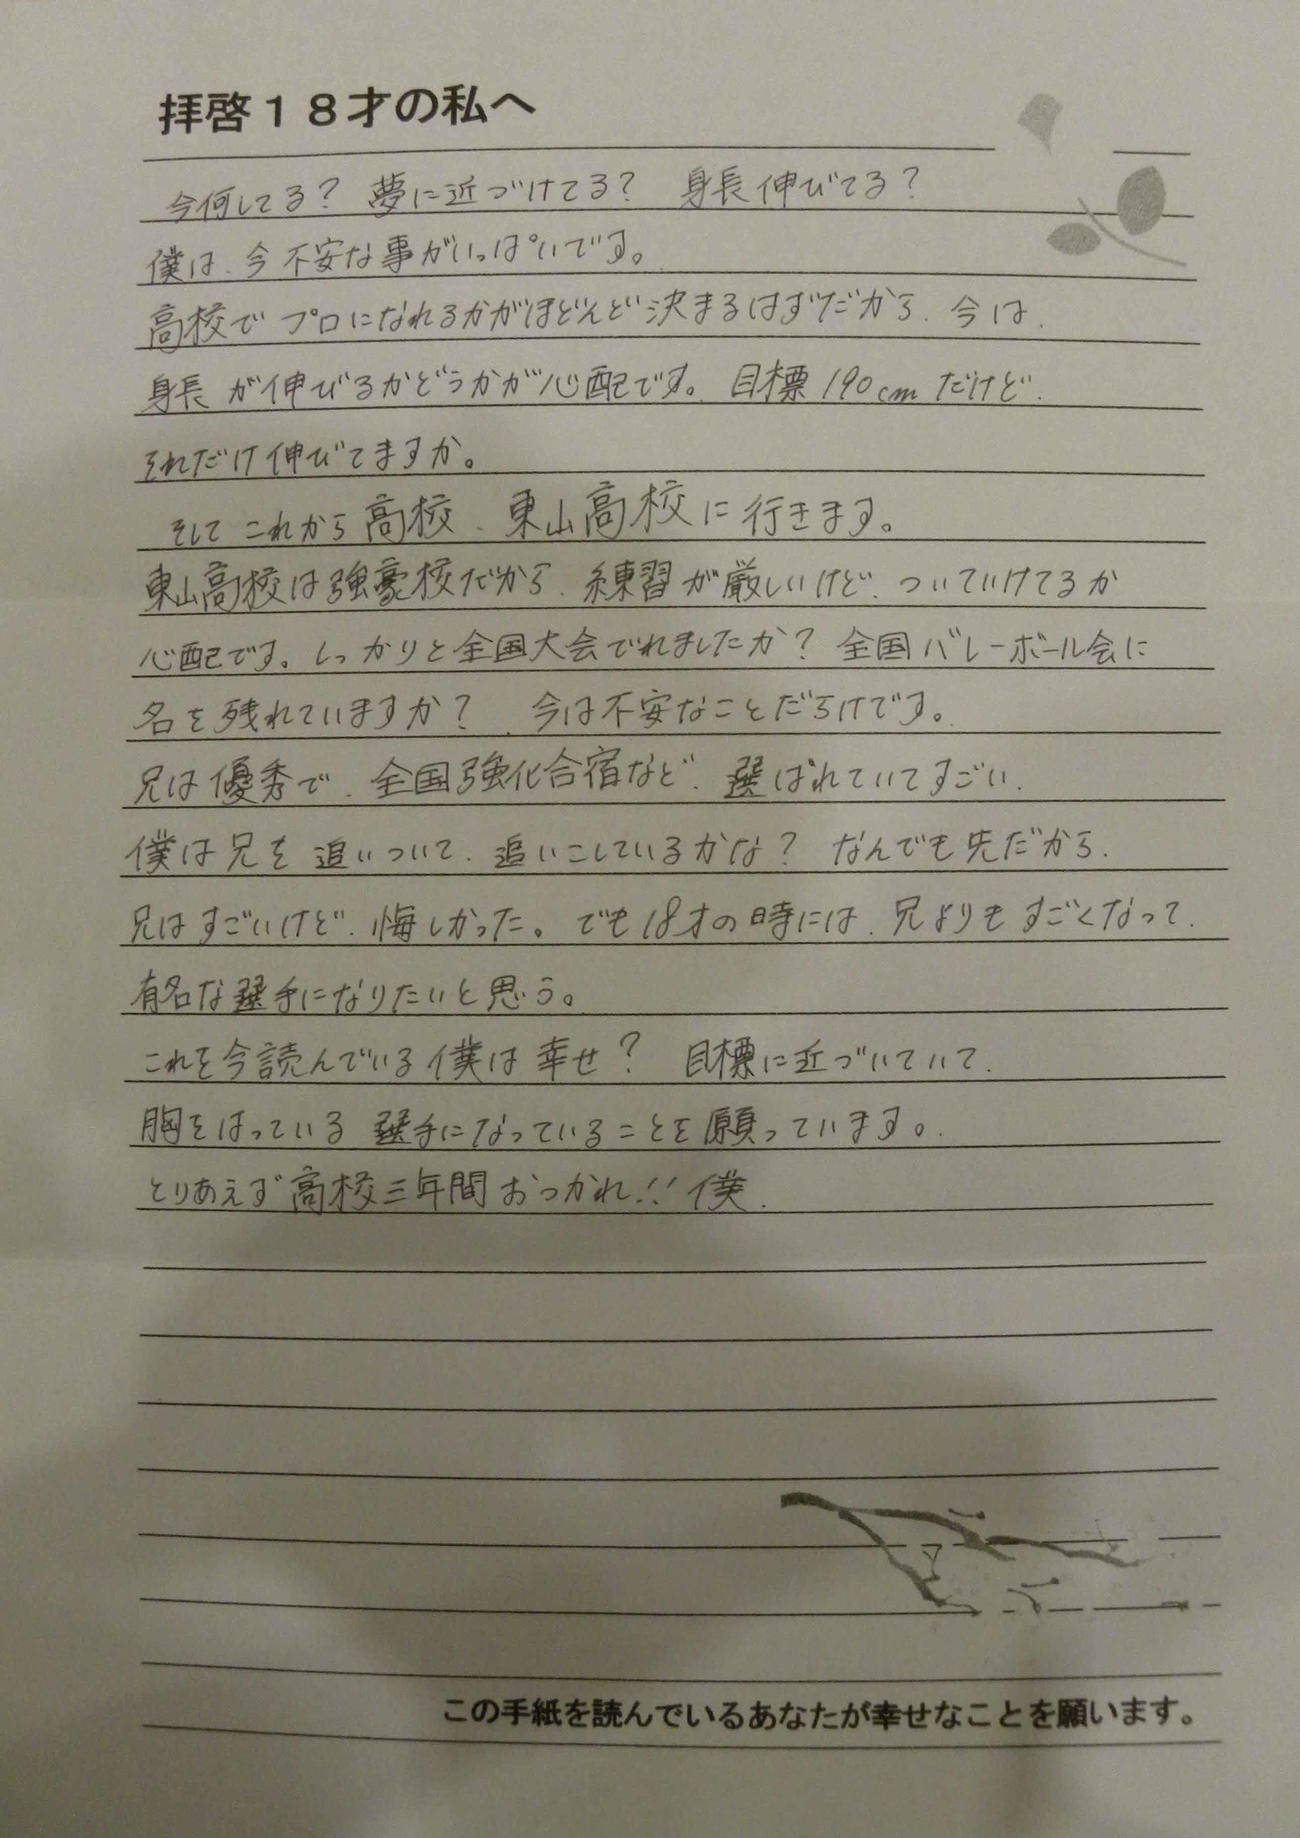 拝啓18才の私へ
今何してる？ 夢に近づけてる？ 身長伸びてる？
僕は、今不安な事がいっぱいです。
高校でプロになれるかがほどんど決まるはずだから、今は、
身長が伸びるかどうかが心配です。目標190cmだけど、
それだけ伸びてますか。
そしてこれから高校、東山高校に行きます。
東山高校は強豪校だから、練習が厳しいけど、ついていけてるか
心配です。しっかりと全国大会でれましたか？ 全国バレーボール会に
名を残れていますか？ 今は不安なことだらけです。
兄は優秀で、全国強化合宿など、選ばれていてすごい、
僕は兄を追いついて、追いこしているかな？ なんでも先だから、
兄はすごいけど、悔しかった。でも18才の時には、兄よりもすごくなって、
有名な選手になりたいと思う。
これを今読んでいる僕は幸せ？ 目標に近づいていて、
胸をはっている選手になっていることを願っています。
とりあえず高校三年間おつかれ!! 僕
この手紙を読んでいるあなたが幸せなことを願います。